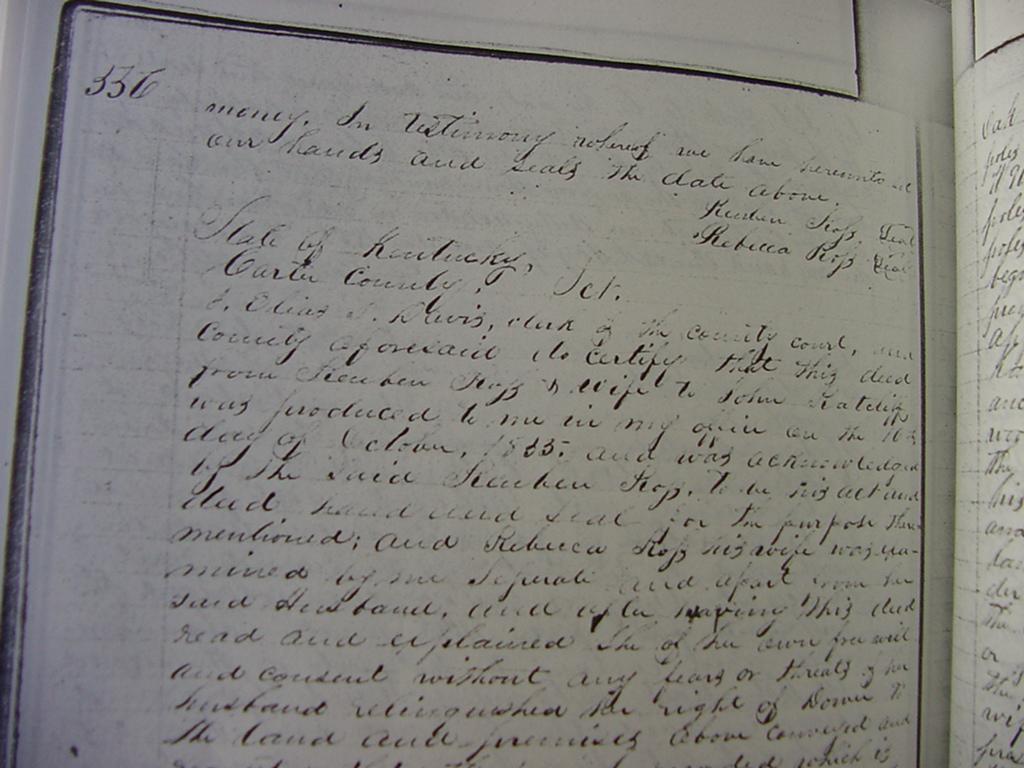 336
money. In testimony whereof we have hereunto set
our hands and seals the date above.
Reuben Ross Seal
Rebecca Ross Seal
State of Kentucky,
Carter County, Sct.
I. Elias P. Davis, clerk of the county court, and
County aforesaid do certify that this deed
from Reuben Ross & wife to John Ratcliff
was produced to me in my office on the 10th
day of October, 1835. and was acknowledged
by the said Reuben Ross, to be his act and
deed hand and seal for the purpose there
mentioned; and Rebecca Ross his wife was exa-
mined by me seperate and apart from her
said Husband, and after having this deed
read and explained she of her own free will
and consent without any fears or threats of her
husband relinquished the right of Dower to
the land and premises above conveyed and
which is
Oak
poles
poles
poles
and
the
his
and
the
or
wife